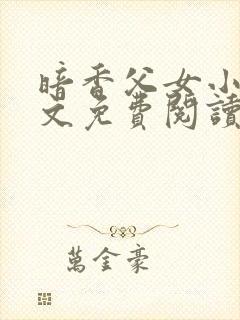 暗香父女小
文免費閱讀
萬金豪